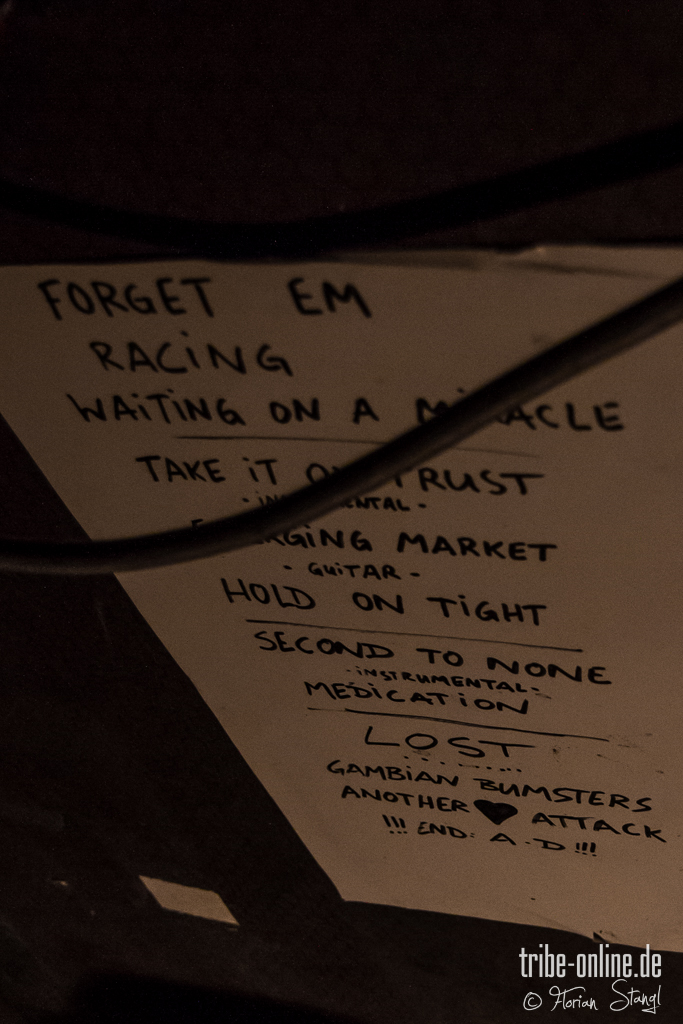 FORGET EM
RACiNG
WAiTiNG ON A MiRACLE
TAKE iT ON TRUST
- iNSTRUMENTAL -
EMERGiNG MARKET
- GUiTAR -
HOLD ON TiGHT
SECOND TO NONE
- iNSTRUMENTAL -
MEDiCATiON
LOST
GAMBiAN BUMSTERS
ANOTHER ♥ ATTACK
!!! END: A.D !!!
tribe-online.de
© Florian Stangl